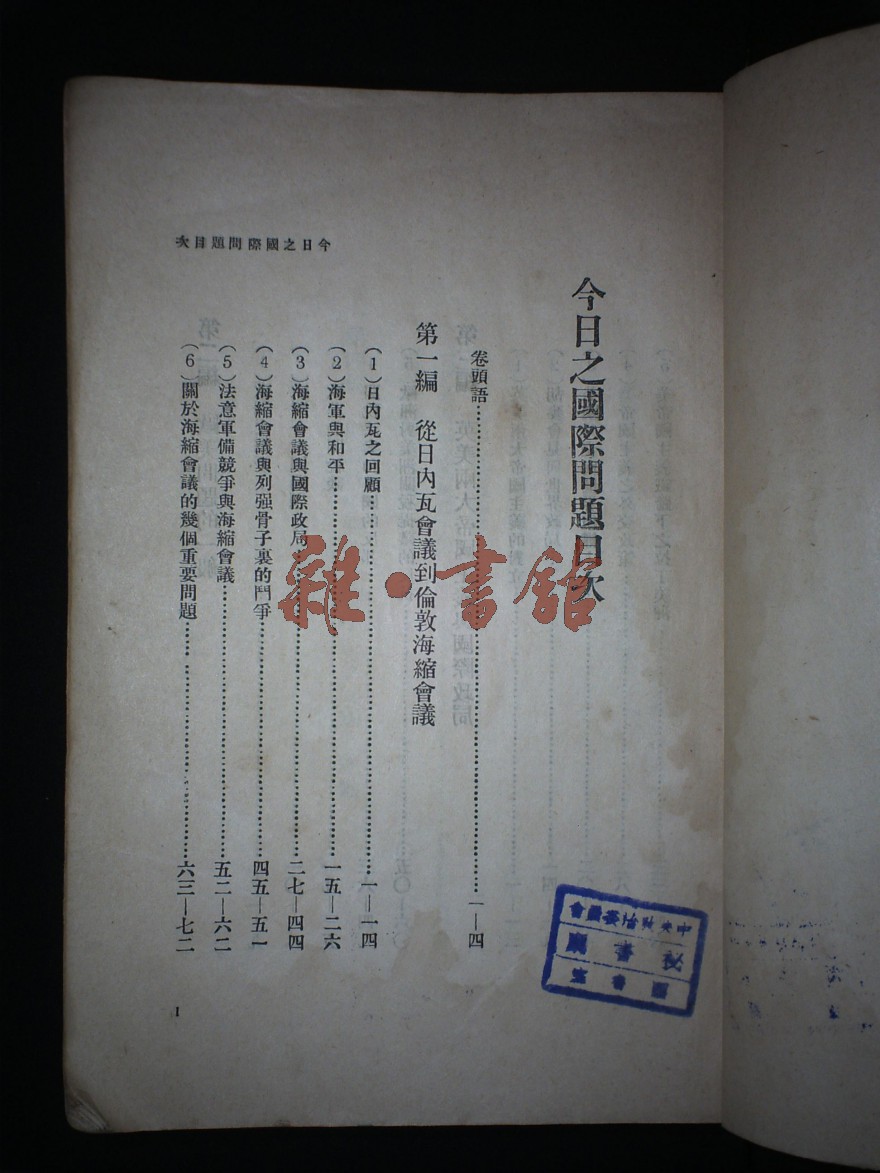 今日之國際問題目次
今日之國際問題目次
卷頭語……一—四
第一編　從日內瓦會議到倫敦海縮會議
（1）日內瓦之回顧……一—一四
（2）海軍與和平……一五—二六
（3）海縮會議與國際政局……二七—四四
（4）海縮會議與列强骨子裏的鬥爭……四五—五一
（5）法意軍備競爭與海縮會議……五二—六二
（6）關於海縮會議的幾個重要問題……六三—七二
I
雜·書館
中央政治委員會
秘書處
圖書室